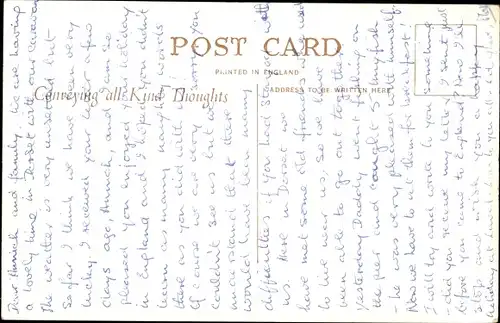 POST CARD
PRINTED IN ENGLAND
Conveying all Kind Thoughts
ADDRESS TO BE WRITTEN HERE
Dear Hinrich and family, We are having
a lovely time in Dorset with our caravan
The weather is very unsettled but
so far I think we have been very
lucky. I received your letter a few
days ago Hinrich, and am so
pleased you enjoyed your holiday
in England and I hope you didn't
learn as many naughty words
there as you did with us.
Of course we are very sorry you
couldn't see us but we
understand that there
would have been many
difficulties if you had stayed with
us. Here in Dorset we
have met some old friends who used
to live near us, so we have
been able to go on together
yesterday Daddy went fishing on
the pier and caught 5 tiny fish
- he was very pleased with himself
Now we have to eat them for breakfast!
I will try and work to you sometime
- did you receive my letter I sent just
before you came to England? Now I'll
stop and wish you a happy